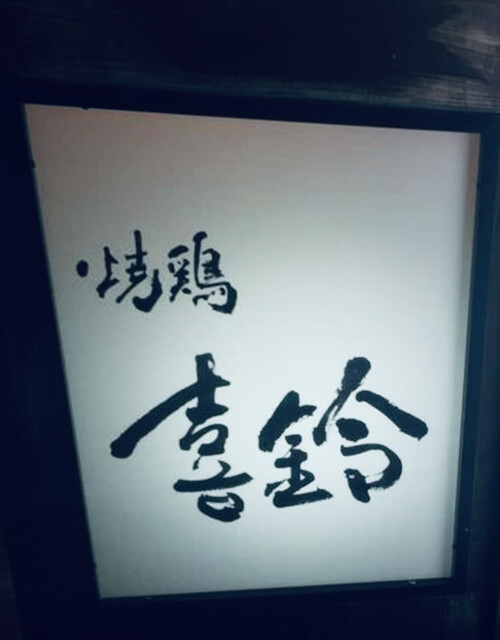 焼鶏
喜鈴